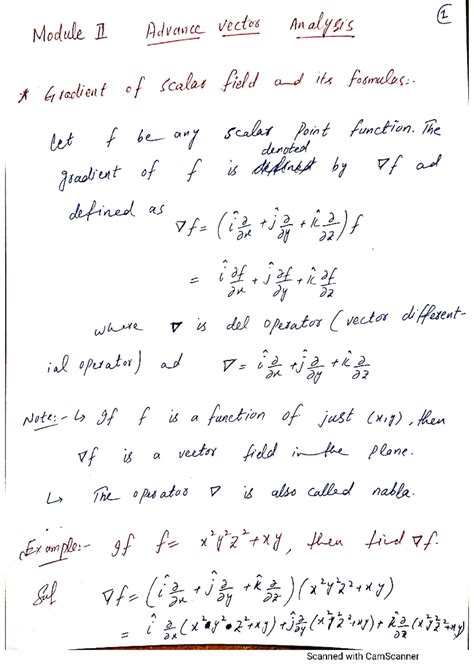 ①
Module II Advance vector Analysis
* Gradient of scalar field and its formulas:-
Let f be any scalar point function. The
denoted
gradient of f is by ∇f ad
defined as
∇f = (î ∂/∂x + ĵ ∂/∂y + k̂ ∂/∂z) f
= î ∂f/∂x + ĵ ∂f/∂y + k̂ ∂f/∂z
where ∇ is del operator (vector different-
ial operator) ad ∇ = î ∂/∂x + ĵ ∂/∂y + k̂ ∂/∂z
Note:- ↳ If f is a function of just (x,y), then
∇f is a vector field in the plane.
↳ The operator ∇ is also called nabla.
Example:- If f = x²y²z² + xy, then find ∇f.
Sol ∇f = (î ∂/∂x + ĵ ∂/∂y + k̂ ∂/∂z)(x²y²z² + xy)
= î ∂/∂x (x²y²z² + xy) + ĵ ∂/∂y (x²y²z² + xy) + k̂ ∂/∂z (x²y²z² + xy)
Scanned with CamScanner